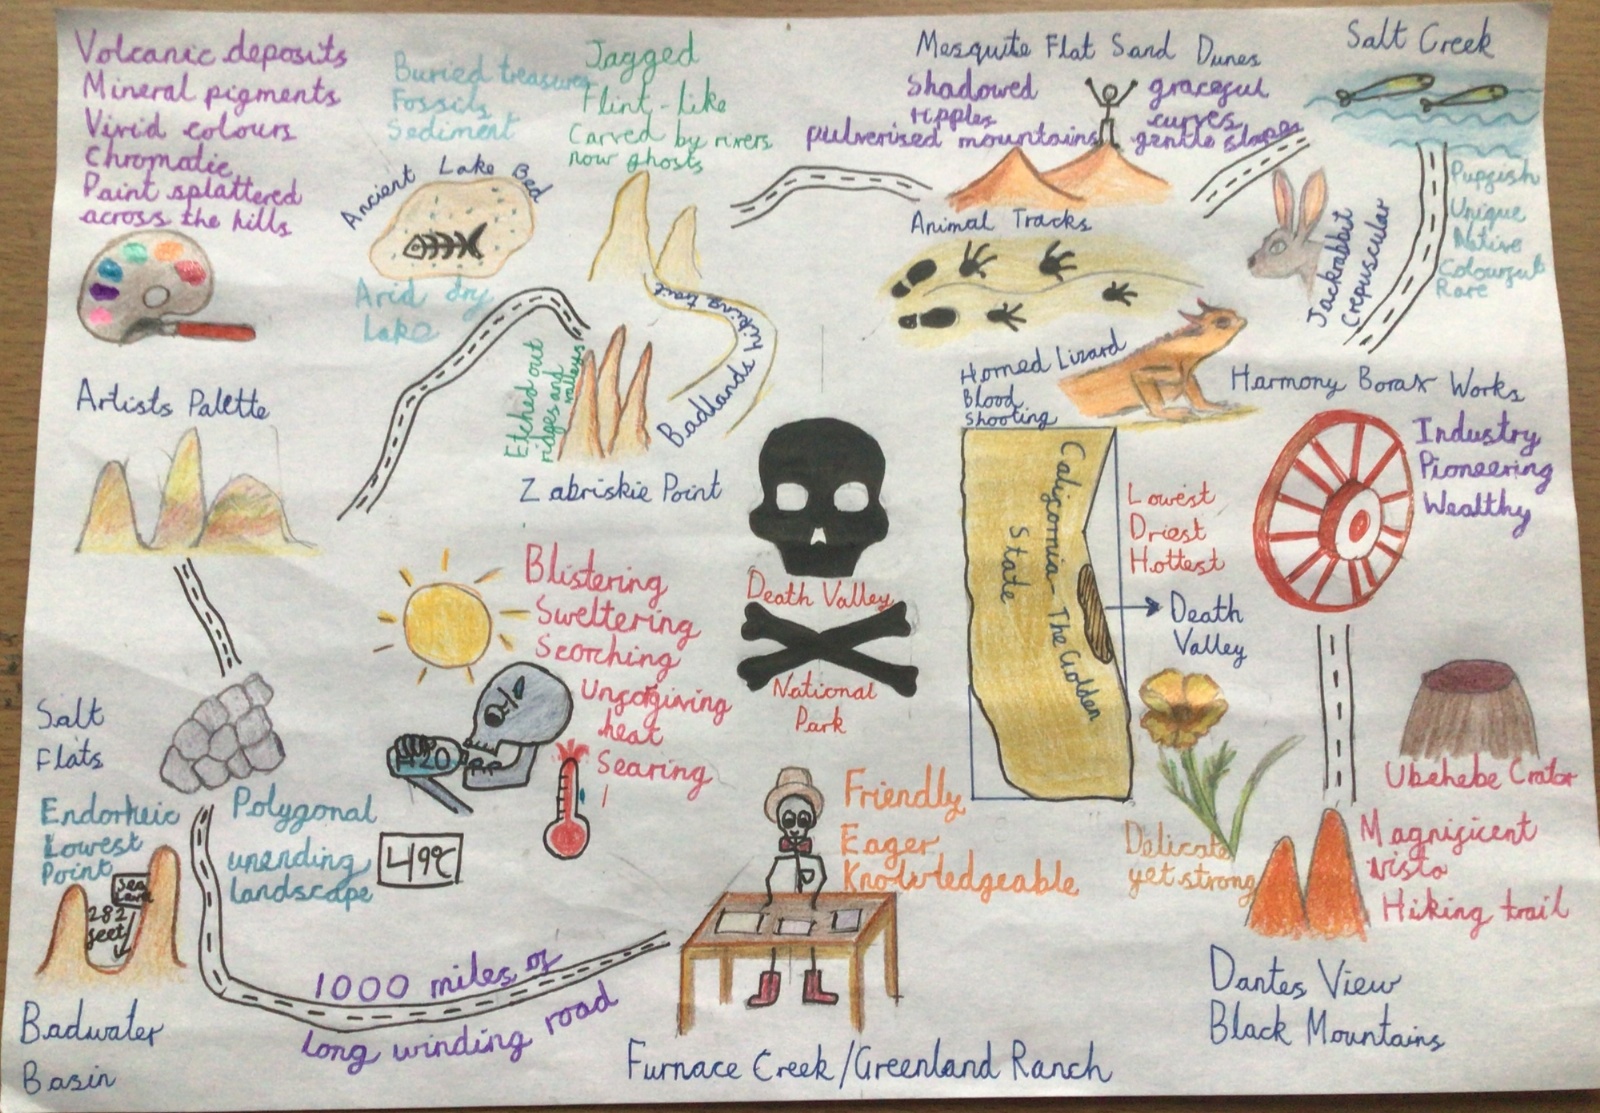 Volcanic deposits
Mineral pigments
Vivid colours
Chromatic
Paint splattered
across the hills
Artists Palette
Buried treasures
Fossils
Sediment
Ancient Lake Bed
Arid dry
Lake
Jagged
Flint-like
Carved by rivers
now ghosts
Hiking trail
Badlands
Etched out
ridges and
valleys
Zabriskie Point
Mesquite Flat Sand Dunes
Shadowed
ripples
pulverised mountains
graceful
curves
gentle slopes
Animal Tracks
Salt Creek
Pupfish
Unique
Native
Colourful
Rare
Jackrabbit
Crepuscular
Horned Lizard
Blood
Shooting
Harmony Borax Works
Industry
Pioneering
Wealthy
California - The Golden
State
Lowest
Driest
Hottest
Death
Valley
Death Valley
National
Park
Blistering
Sweltering
Scorching
Unforgiving
heat
Searing
H2O
49°C
Salt
Flats
Polygonal
unending
landscape
Endorheic
Lowest
Point
Sea
Level
282
feet
Badwater
Basin
1000 miles of
long winding road
Friendly
Eager
Knowledgeable
Furnace Creek/Greenland Ranch
Delicate
yet strong
Ubehebe Crator
Magnificent
vista
Hiking trail
Dantes View
Black Mountains